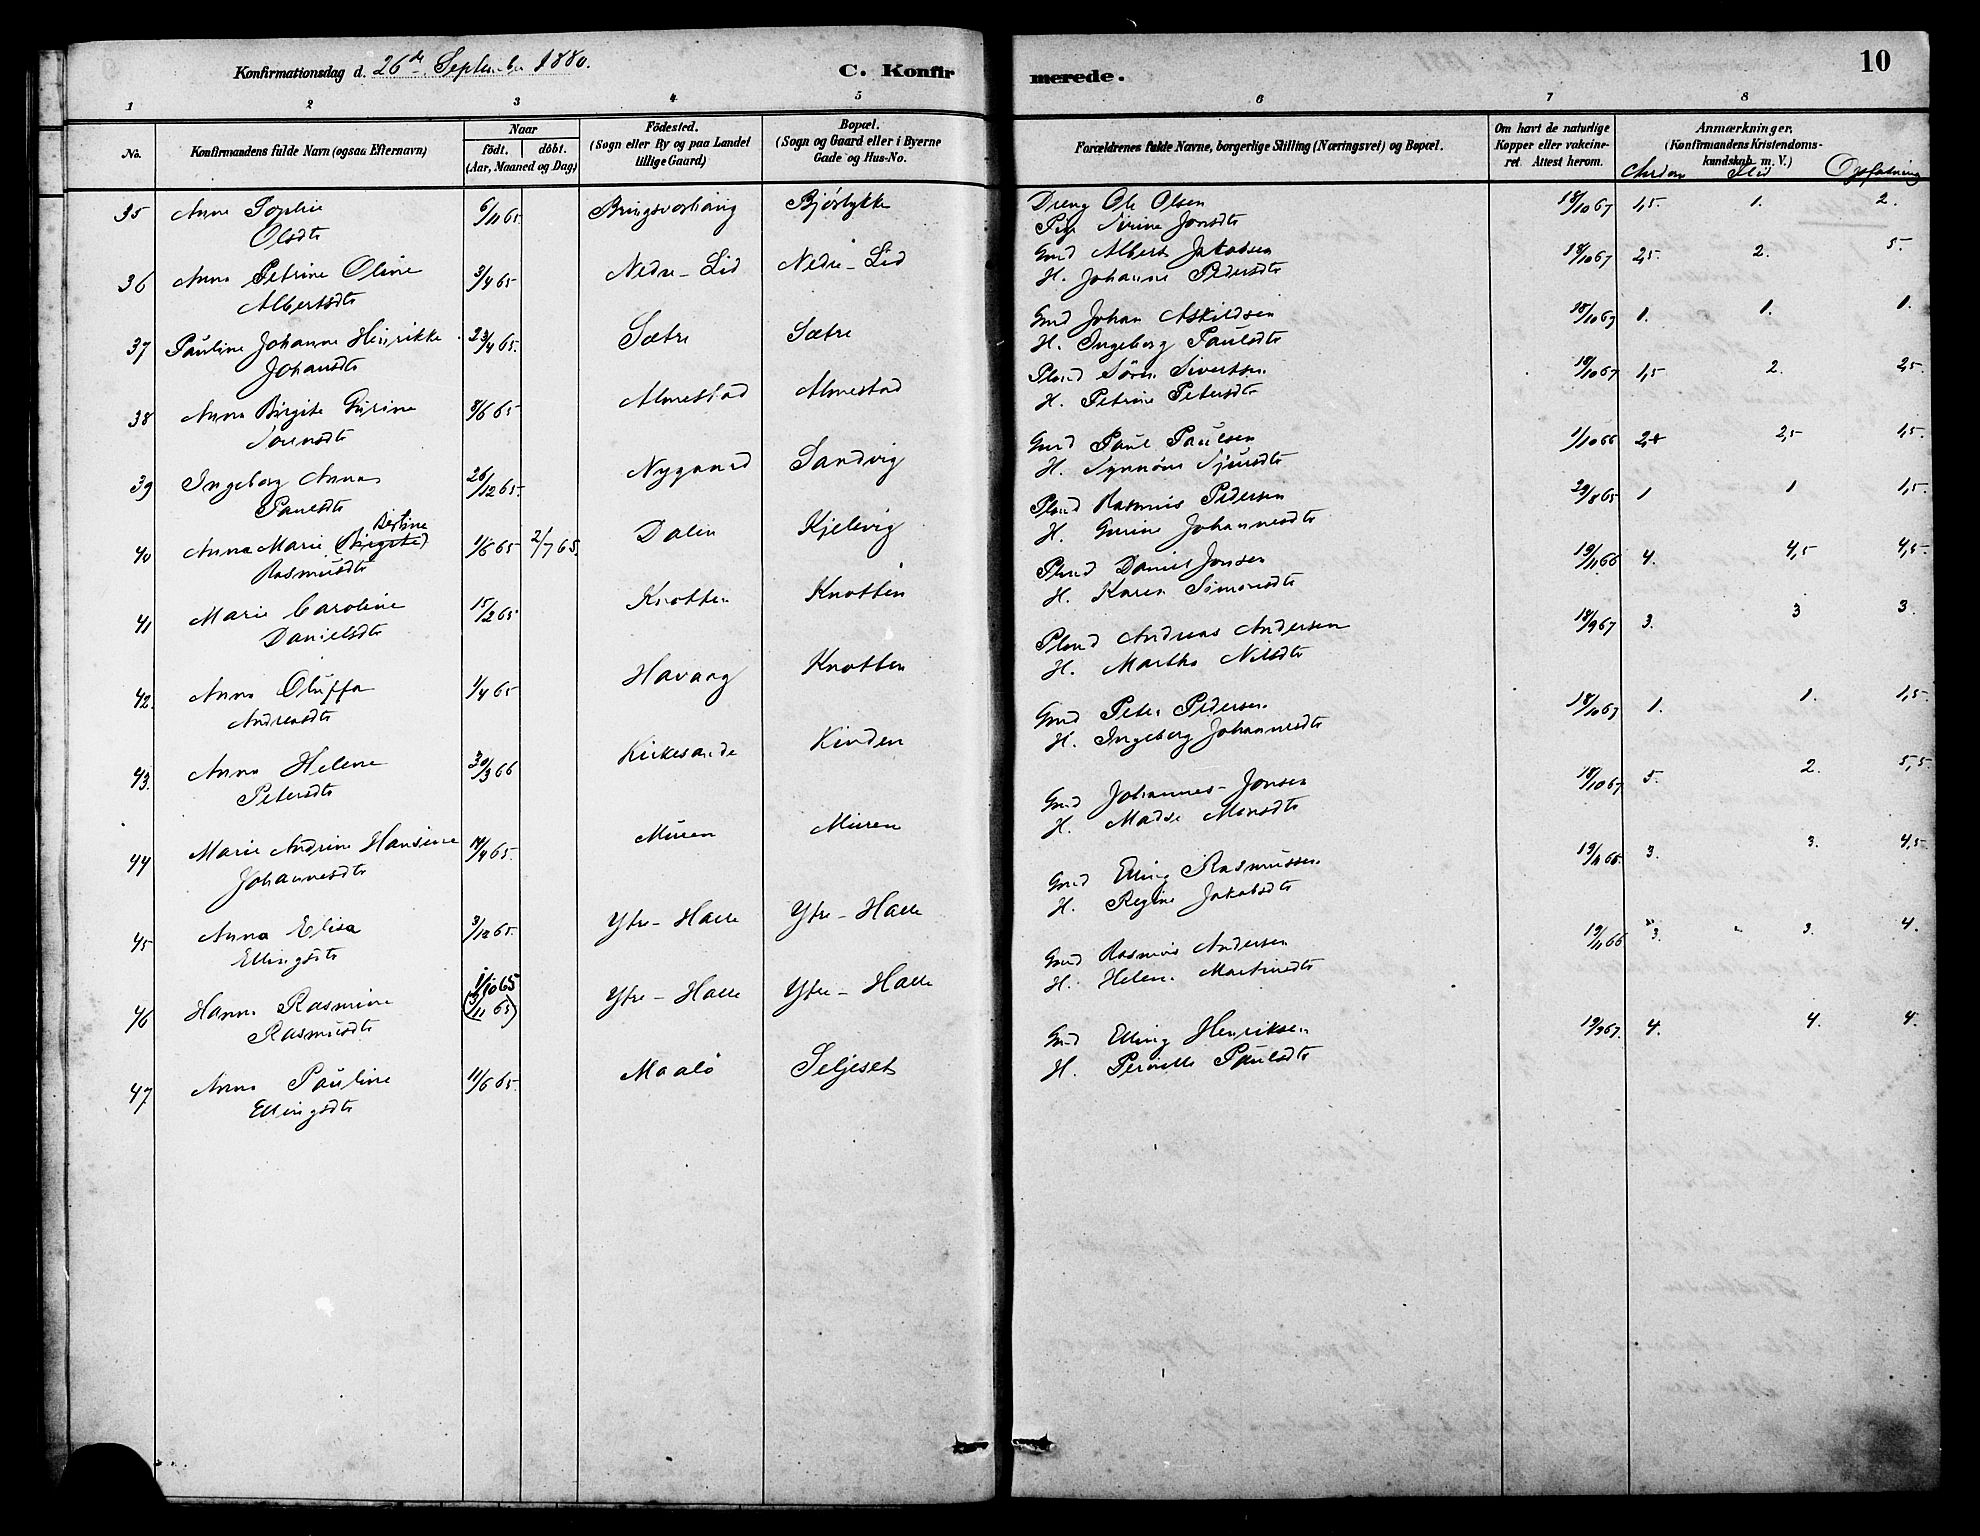 Konfirmationsdag d. 26de September 1880.
C. Konfirmerede.
10
1 2 3 4 5 6 7 8
No.
Konfirmandens fulde Navn (ogsaa Efternavn)
Naar
födt. döbt.
(Aar, Maaned og Dag)
Födested.
(Sogn eller By og paa Landet
tillige Gaard)
Bopæl.
(Sogn og Gaard eller i Byerne
Gade og Hus-No.
Forældrenes fulde Navne, borgerlige Stilling (Næringsvei) og Bopæl.
Om havt de naturlige
Kopper eller vakcine-
ret. Attest herom.
Anmærkninger.
(Konfirmandens Kristendoms-
kundskab m. V.)
Flid Opfatning
35 Anne Sophie 6/11 65 Bjørlykke Dreng Ole Olsen 18/10 67 1,5. 1. 2.
Olsdtr Pige Sirine Jonsdtr
36 Anna Petrine Oline 3/4 65 Nedre-Lid Nedre-Lid Gmd Albert Jakobsen 18/10 67 2,5 2. 5.
Albertsdtr H. Johanne Pedersdtr
37 Pauline Johanne Henrikke 23/4 65. Sætre Sætre Gmd Johan Askildsen 18/10 67 1. 1. 1.
Johansdtr H. Ingeborg Paulsdtr
38 Anna Birgite Gurine 8/6 65 Almestad Almestad Plmd Sören Sivertsen 18/10 67 1,5 2. 2,5.
Sørensdtr H. Petrine Petersdtr
39 Ingeborg Anna 26/12 65. Nygaard Sandvig Gmd Paul Paulsen 1/10 66 2,5 1,5.
Paulsdtr H. Synnöve Sjursdtr
40 Anna Marie (Birgitte) Bertine 1/6 65 2/7 65. Dalen Kjelvig Plmd Rasmus Pedersen 29/8 65 1 1 1,5.
Rasmusdtr H. Gurine Johannesdtr
41 Marie Caroline 15/2 65 Knotten Knotten Plmd Daniel Jonsen 19/11 66 4. 4,5 4,5.
Danielsdtr H. Karen Simonsdtr
42. Anna Oluffa 1/4 65 Havaag Knotten Plmd Andreas Andersen 18/9 67 3. 3 3.
Andreasdtr H. Martha Nilsdtr
43. Anna Helene 30/3 66 Kirkesande Kinden Gmd Peter Pedersen 18/10 67 1. 1. 1,5.
Petersdtr H. Ingeborg Johannesdtr
44 Marie Andrine Hansine 14/4 65. Muren Muren Gmd Johannes Jonsen 18/10 67 5. 2. 5,5
Johannesdtr H. Madse Monsdtr
45 Anna Elisa 3/12 65. Ytre-Halle Ytre-Halle Gmd Elling Rasmussen 19/11 66 3. 3. 4,5
Ellingsdtr H. Regine Jakobsdtr
46 Hanna Rasmine 1/10 65 (3/11 65) Ytre-Halle Ytre-Halle Gmd Rasmus Andersen 19/11 66 3. 3. 4.
Rasmusdtr H. Helene Martinsdtr
47. Anna Pauline 11/6 65. Maalö Seljeset Gmd Elling Henriksen 19/9 67. 4. 4. 4.
Ellingsdtr H. Pernille Paulsdtr